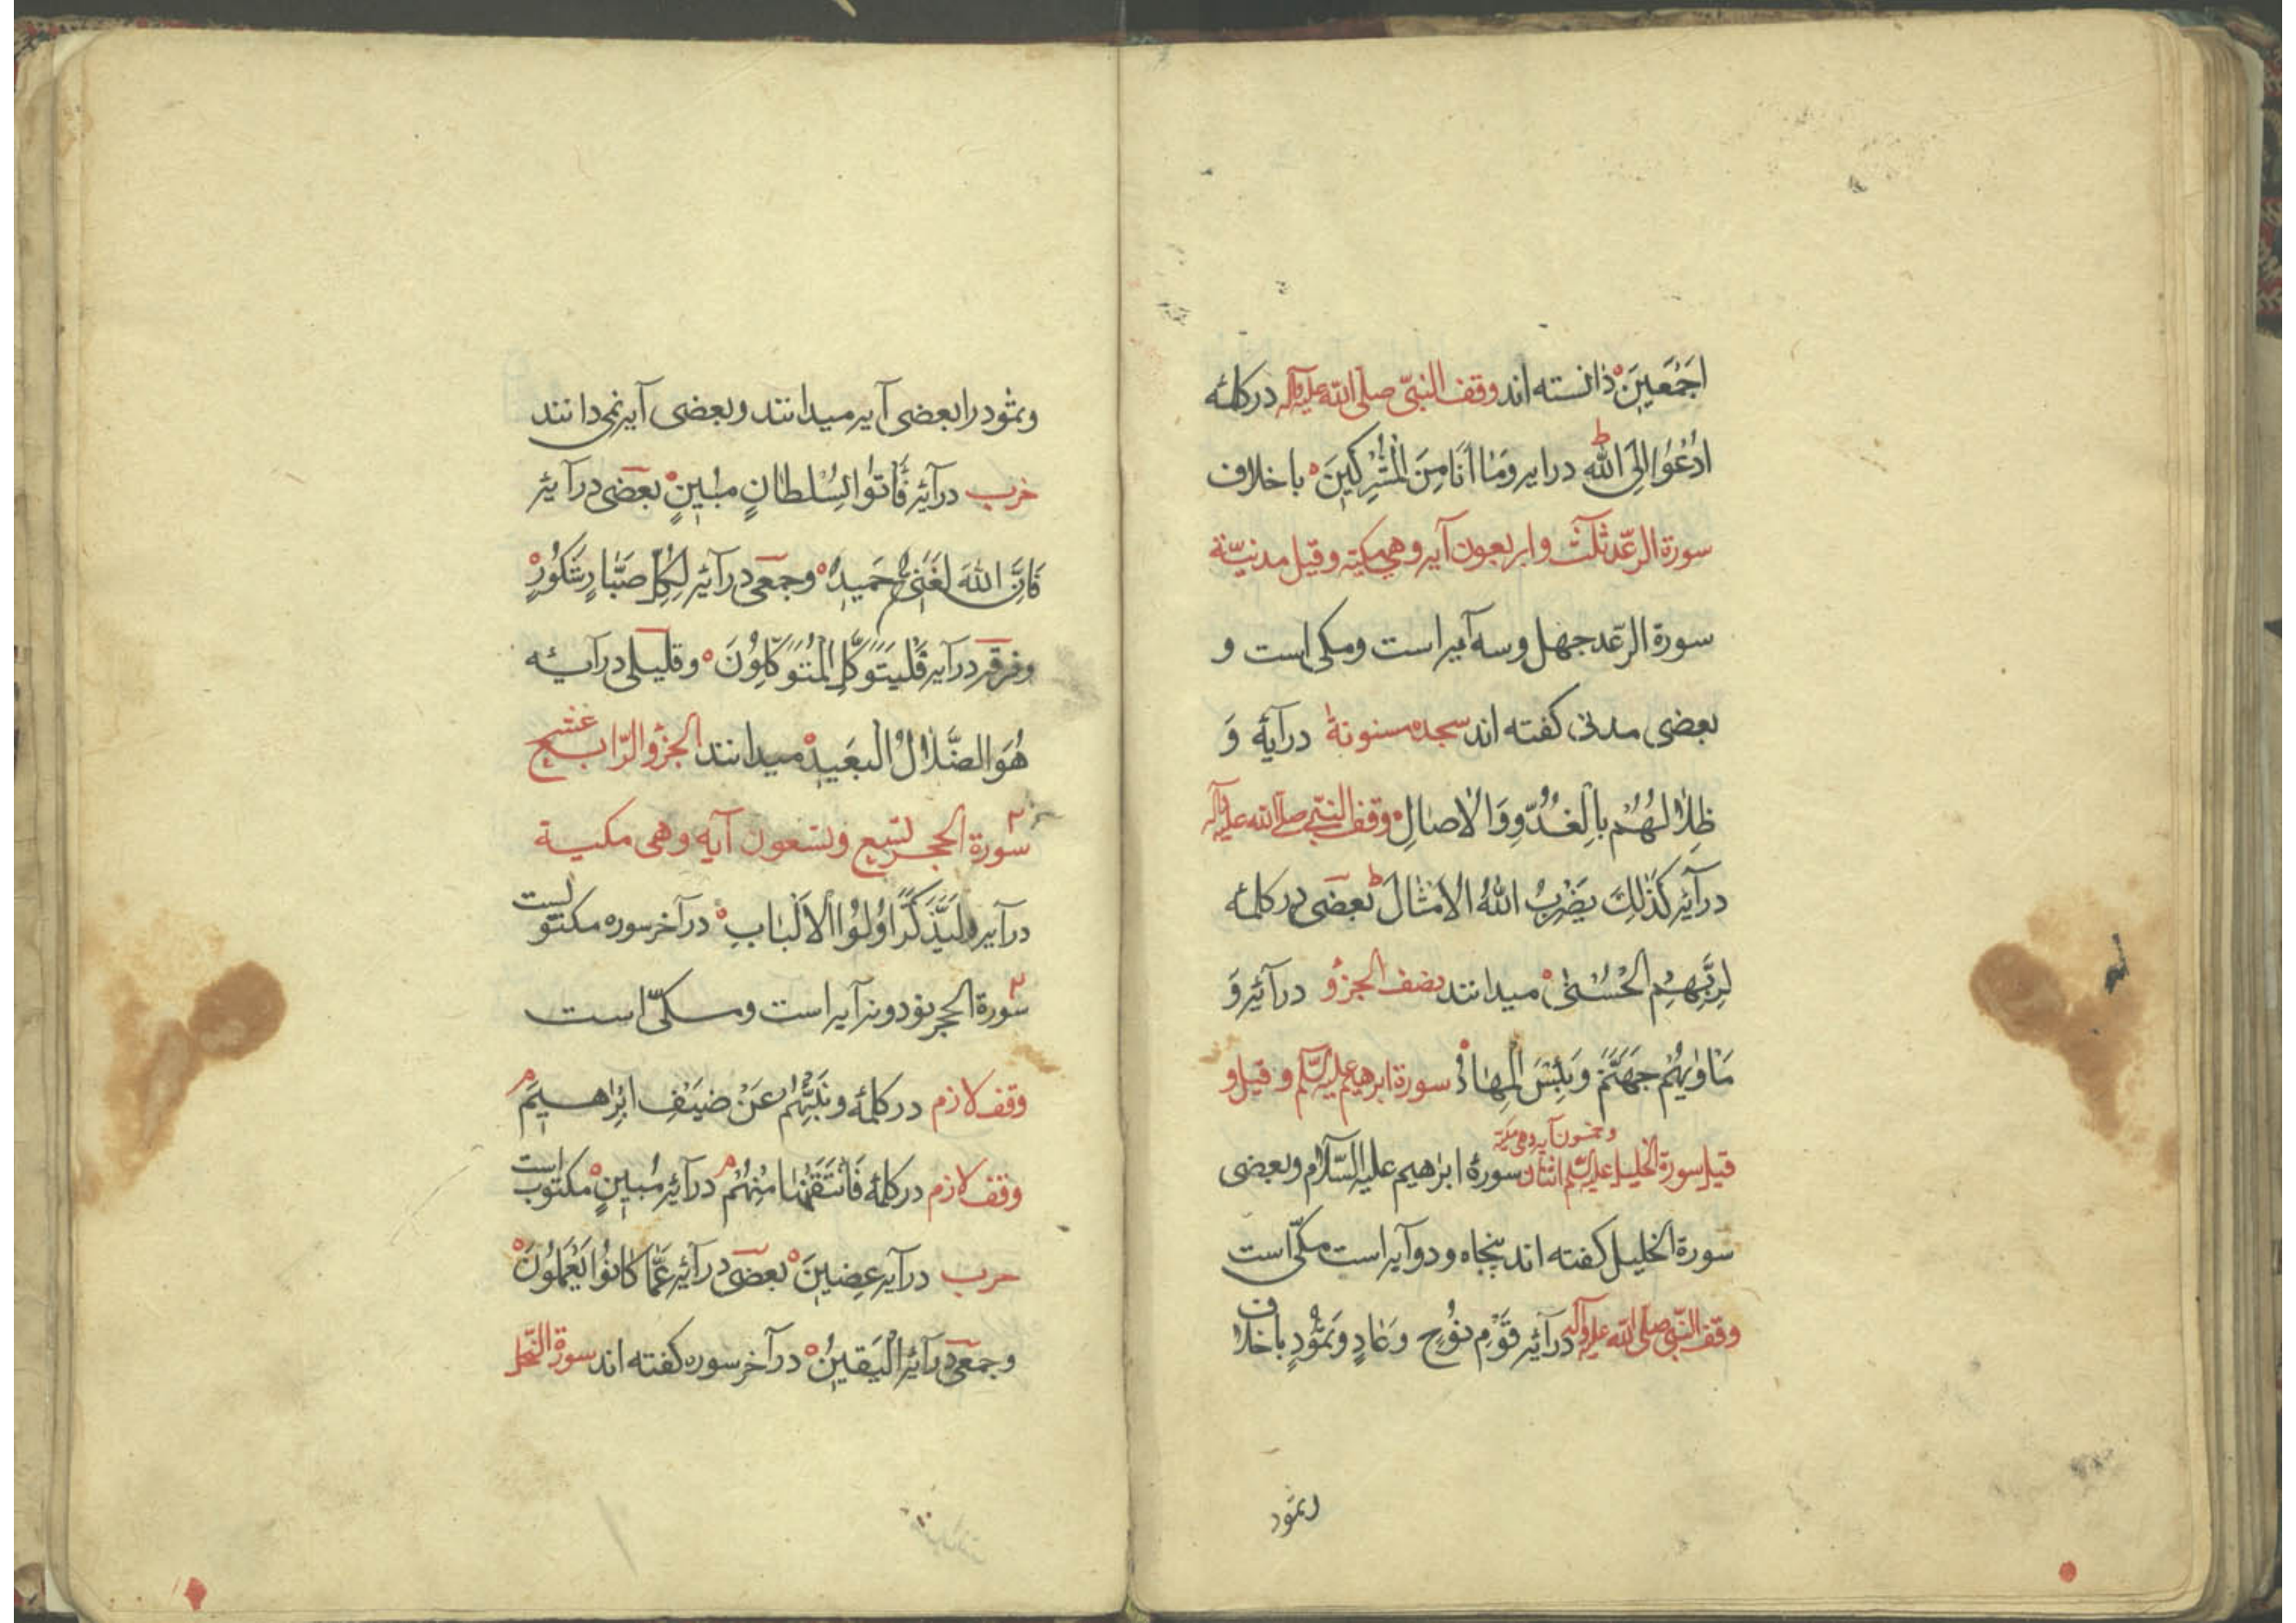 اَجْمَعينَ ذانسته اند وقف النبّی صلی الله علیه وآله در کلمهٔ
اَدْعُوا اِلَی اللهِ ط درایه وَمٰا اَنَا مِنَ الْمُشْرِکینَ باخلاف
سورة الرّعد ثلٰث واربعون آیه وهی مکیّه وقیل مدنیّة
سورة الرّعد چهل وسه آیه است ومکی است و
بعضی مدنی کفته اند سجده مسنونهٔ درآیهٔ وَ
ظِلٰالُهُمْ بِالْغُدُوِّ وَالْاٰصٰالِ وقف النبّی صلی الله علیه وآله
درآیهٔ کَذٰلِكَ یَضْرِبُ اللهُ الْاَمْثٰالَ ط بعضی در کلمهٔ
لِرَبِّهِمُ الْحُسْنٰی میدانند نصف الجزؤ درآیهٔ وَ
مَاْوٰیهُمْ جَهَنَّمُ وَبِئْسَ الْمِهٰادُ سورة ابرهیم علیه السّلم وقیل و
وخمسون آیه وهی مکیّة
قیل سورة الخلیل علیه السّلم اثنان سورهٔ ابرٰهیم علیه السّلام وبعضی
سورة الخلیل کفته اند پنجاه ودوآیه است مکّی است
وقف النبّی صلی الله علیه وآله درآیهٔ قَوْمِ نوُحٍ وَعٰادٍ وَثَمُودٍ باخلاف
وثمود
وثمود رابعضی آیه میدانند وبعضی آیه نمی دانند
حزب درآیهٔ فَأْتُوا بِسُلْطٰانٍ مُبینٍ بعضی درآیهٔ
فَاِنَّ اللهَ لَغَنِیٌّ حَمیدٌ وجمعی درآیهٔ لِکُلِّ صَبّٰارٍ شَکُورٍ
وفرقه درآیه فَلْیَتَوَکَّلِ الْمُتَوَکِّلوُنَ وقلیلی درآیهٔ
هُوَ الضَّلٰالُ الْبَعیدُ میدانند الجزؤ الرّابع عشر
سورة الحجر تسع وتسعون آیه وهی مکیة
درآیه وَلِیَذَّکَّرَ اوُلوُا الْاَلْبٰابِ درآخر سوره مکتوبست
سورة الحجر نود ونه آیه است ومکّی است
وقف لازم در کلمهٔ وَنَبِّئْهُمْ عَنْ ضَیْفِ اِبْرٰاهیمَ م
وقف لازم در کلمهٔ فَانْتَقَمْنٰا مِنْهُمْ م درآیهٔ مُبینٍ مکتوب است
حزب درآیه عِضینَ بعضی درآیهٔ عَمّٰا کٰانوُا یَعْمَلوُنَ
وجمعی درآیهٔ الْیَقینُ درآخر سوره کفته اند سورة النّحل